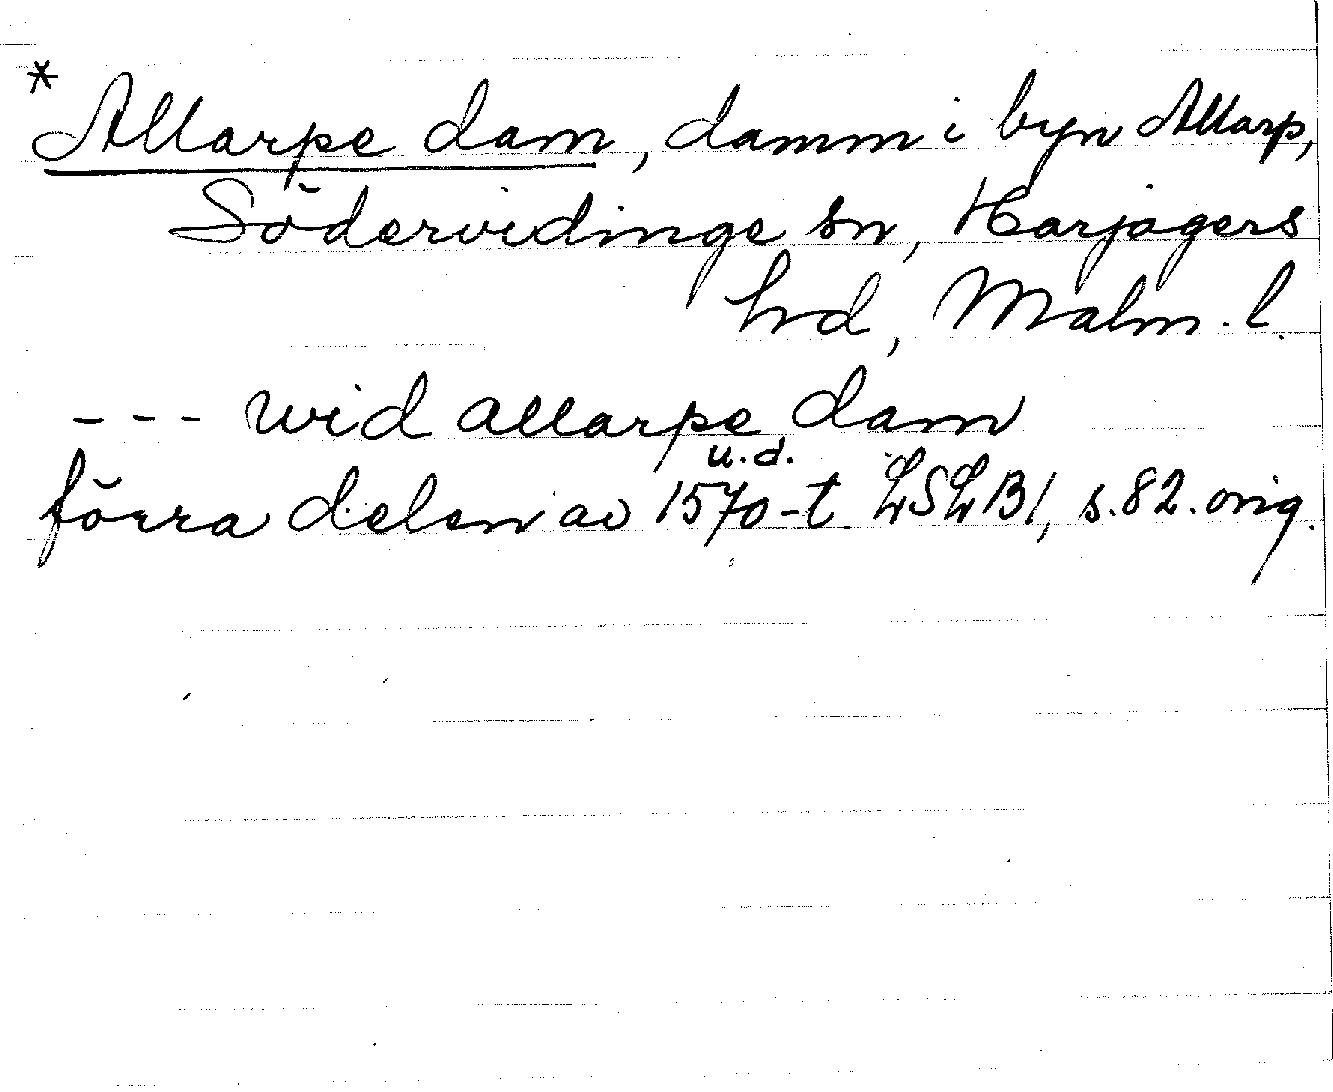 * Allarpe dam, damm i byn Allarp,
Södervidinge sn, Harjagers
hd, Malm. l.
--- wid allarpe dam
u.d.
förra delen av 1570-t LSLB1, s. 82. orig.